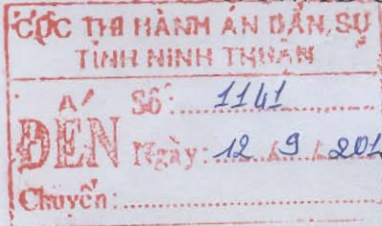 CỤC THI HÀNH ÁN DÂN SỰ
TỈNH NINH THUẬN
ĐẾN
Số: 1141
Ngày: 12 / 9 / 201
Chuyển: